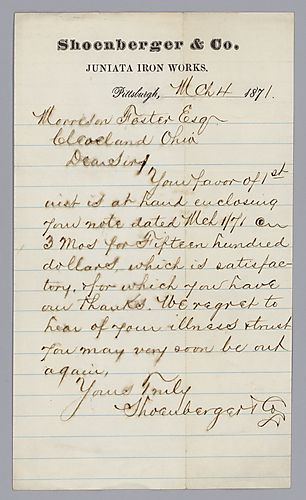 Shoenberger & Co.
JUNIATA IRON WORKS.
Pittsburgh, Mch 4 1871.
Morrison Foster Esq
Cleveland Ohio
Dear Sir,
Your favor of 1st
inst is at hand enclosing
your note dated Mch 1/71 on
3 Mos for Fifteen hundred
dollars, which is satisfac-
tory, for which you have
our thanks. We regret to
hear of your illness & trust
you may very soon be out
again,
Yours Truly
Shoenberger & Co